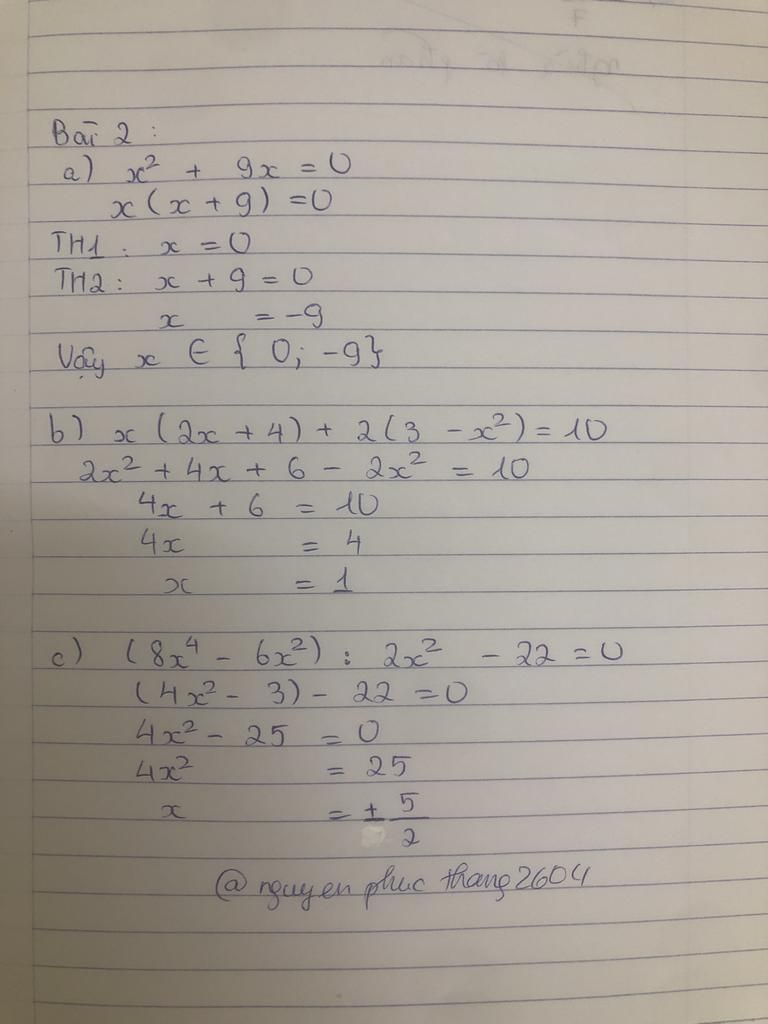 Bài 2 :
a) x² + 9x = 0
x(x + 9) = 0
TH1 : x = 0
TH2 : x + 9 = 0
x = -9
Vậy x ∈ { 0; -9}
b) x (2x + 4) + 2(3 - x²) = 10
2x² + 4x + 6 - 2x² = 10
4x + 6 = 10
4x = 4
x = 1
c) (8x⁴ - 6x²) : 2x² - 22 = 0
(4x² - 3) - 22 = 0
4x² - 25 = 0
4x² = 25
x = ± 5/2
@ nguyen phuc thang2604